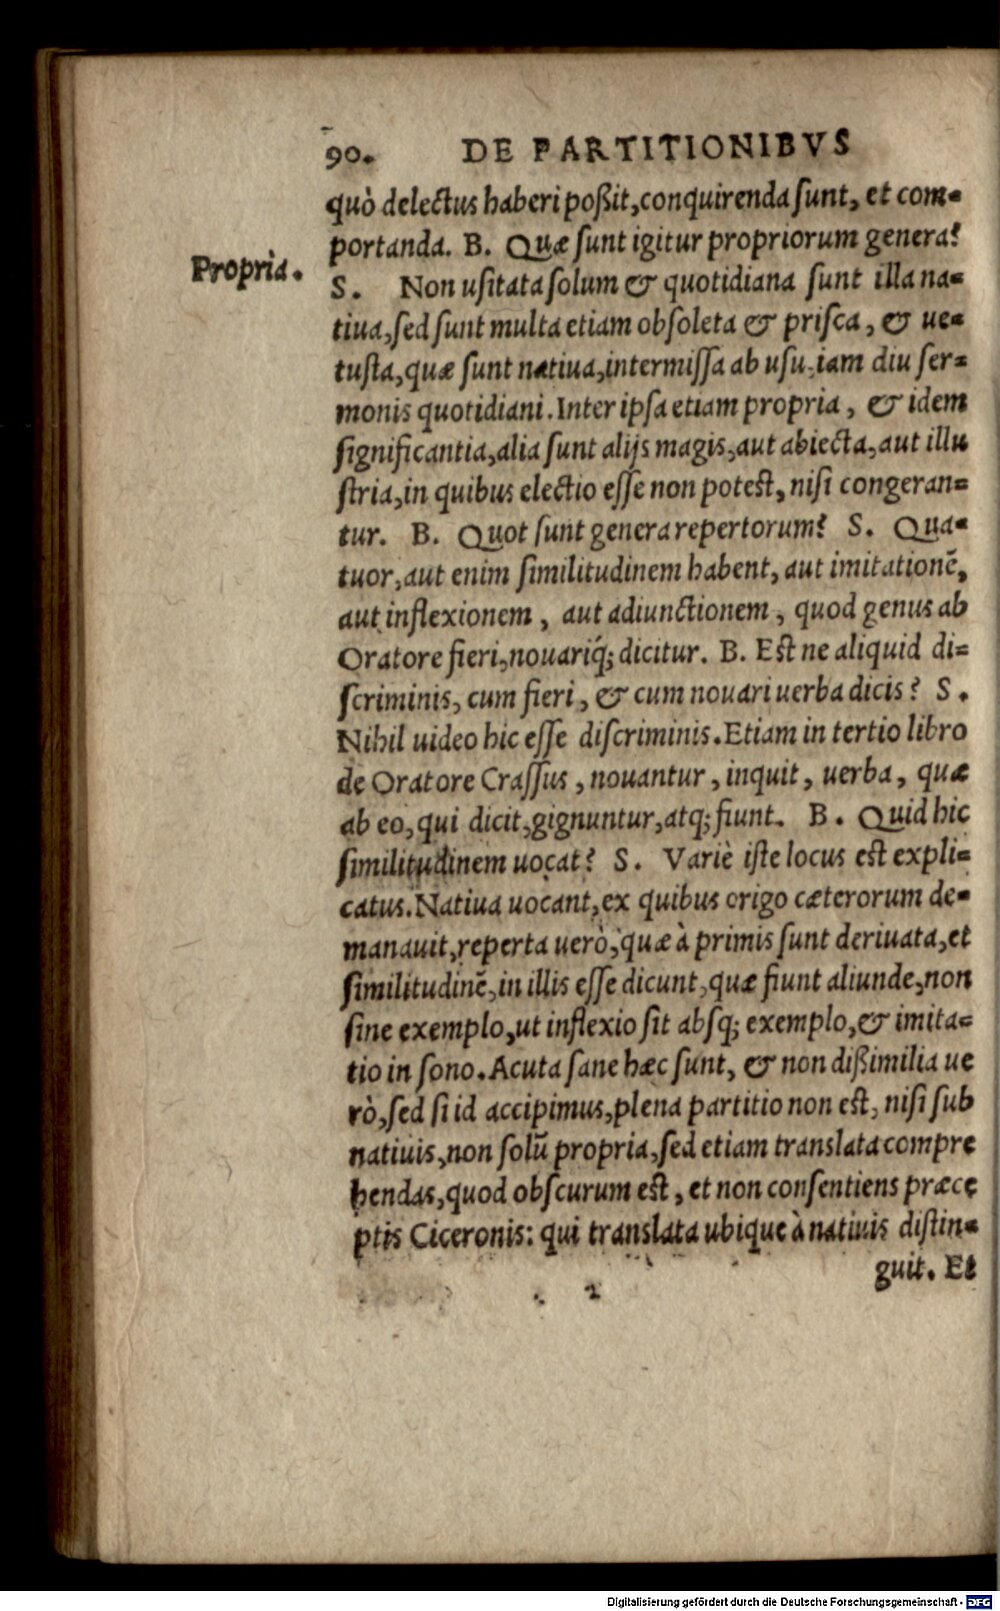 90. DE PARTITIONIBVS
quò delectus haberi poßit, conquirenda sunt, et com-
portanda. B. Quæ sunt igitur propriorum genera?
Propria.
S. Non usitata solum & quotidiana sunt illa na-
tiua, sed sunt multa etiam obsoleta & prisca, & ue-
tusta, quæ sunt natiua, intermissa ab usu, iam diu ser-
monis quotidiani. Inter ipsa etiam propria, & idem
significantia, alia sunt alijs magis, aut abiecta, aut illu
stria, in quibus electio esse non potest, nisi congeran-
tur. B. Quot sunt genera repertorum? S. Qua-
tuor, aut enim similitudinem habent, aut imitationē,
aut inflexionem, aut adiunctionem, quod genus ab
Oratore fieri, nouariq́; dicitur. B. Est ne aliquid di-
scriminis, cum fieri, & cum nouari uerba dicis? S.
Nihil uideo hic esse discriminis. Etiam in tertio libro
de Oratore Crassus, nouantur, inquit, uerba, quæ
ab eo, qui dicit, gignuntur, atq; fiunt. B. Quid hic
similitudinem uocat? S. Variè iste locus est expli-
catus. Natiua uocant, ex quibus origo cæterorum de-
manauit, reperta uerò, quæ à primis sunt deriuata, et
similitudinē, in illis esse dicunt, quæ fiunt aliunde, non
sine exemplo, ut inflexio sit absq; exemplo, & imita-
tio in sono. Acuta sane hæc sunt, & non dißimilia ue
rò, sed si id accipimus, plena partitio non est, nisi sub
natiuis, non solū propria, sed etiam translata compre
hendas, quod obscurum est, et non consentiens præce
ptis Ciceronis: qui translata ubique à natiuis distin-
guit. Et
Digitalisierung gefördert durch die Deutsche Forschungsgemeinschaft - DFG